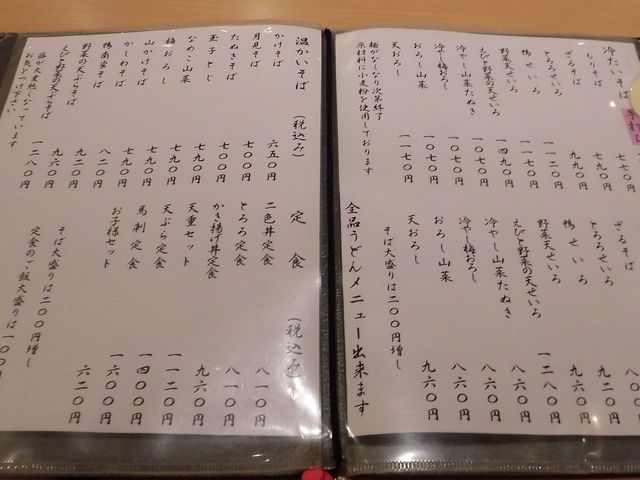 冷たいそば
もりそば 七七〇円
ざるそば
とろろせいろ 九九〇円
鴨せいろ 一一二〇円
野菜天せいろ 一一七〇円
えびと野菜の天せいろ 一四九〇円
冷やし山菜たぬき 一〇七〇円
冷やし梅おろし 一〇七〇円
おろし山菜 一〇七〇円
天おろし 一一七〇円
麺がなくなり次第終了
原材料に小麦粉を使用しております
ざるそば
とろろせいろ 九二〇円
鴨せいろ 九六〇円
野菜天せいろ
えびと野菜の天せいろ 一二八〇円
冷やし山菜たぬき 八六〇円
冷やし梅おろし 八六〇円
おろし山菜 八六〇円
天おろし 九六〇円
そば大盛りは二〇〇円増し
全品うどんメニュー出来ます
温かいそば (税込み)
かけそば 六五〇円
月見そば 七〇〇円
たぬきそば 七〇〇円
玉子とじ 七九〇円
なめこ山菜 七九〇円
梅おろし 七九〇円
山かけそば 七九〇円
かしわそば 八二〇円
鴨南蛮そば 九二〇円
野菜の天ぷらそば 九六〇円
えびと野菜の天ぷらそば 一二八〇円
器が大変熱くなっています
お気をつけ下さい
定食 (税込み)
二色丼定食 八一〇円
とろろ定食 八一〇円
かき揚げ丼定食 九六〇円
天重セット 一一二〇円
天ぷら定食 一四〇〇円
馬刺定食 一六〇〇円
お子様セット 六二〇円
そば大盛りは二〇〇円増し
定食のご飯大盛りは一〇〇円